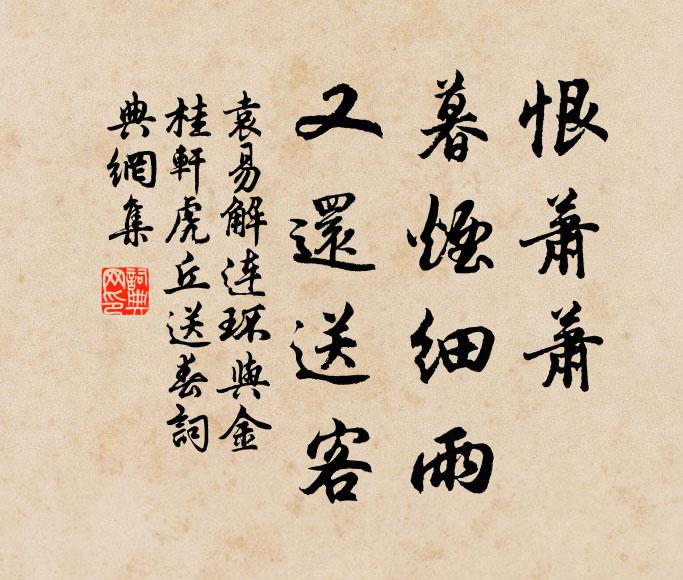 恨蕭蕭
暮煙細雨
又還送客
袁易解連環與金
桂軒虎丘送春詞
典網集
詞典網印